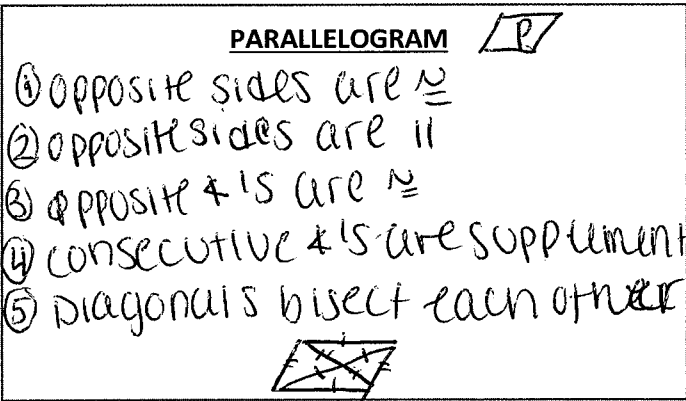 PARALLELOGRAM P
① opposite sides are ≅
② opposite sides are ||
③ opposite ∡'s are ≅
④ consecutive ∡'s are supplement
⑤ Diagonals bisect each other